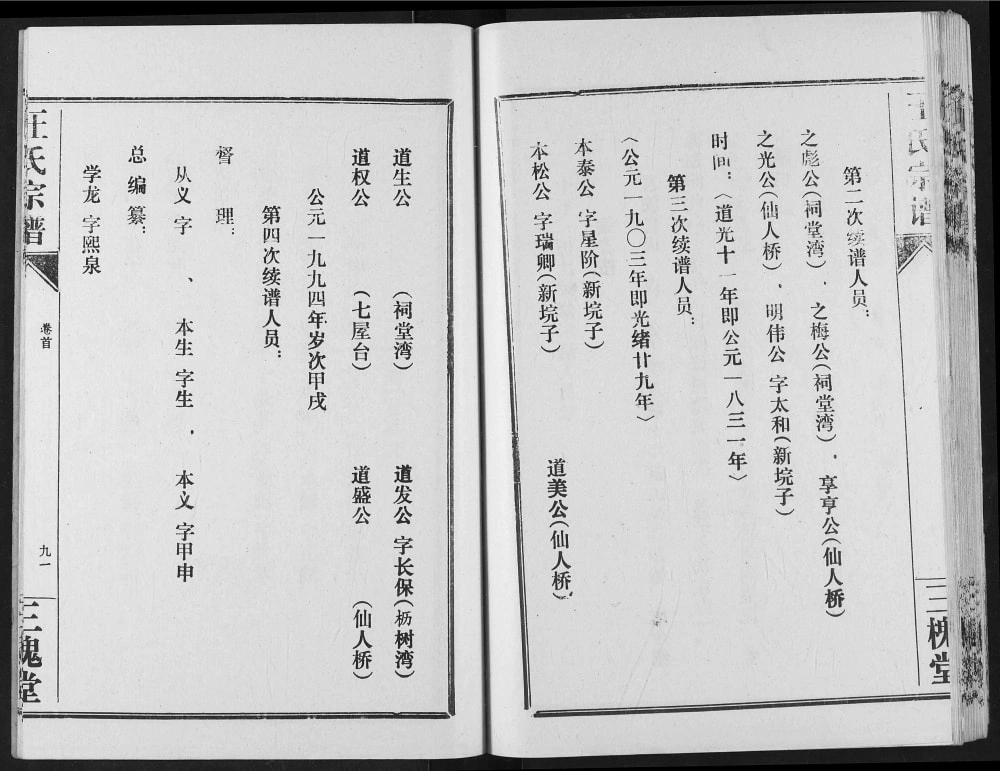 王氏宗谱
三槐堂
第二次续谱人员：
之彪公（祠堂湾）、之梅公（祠堂湾）、享亨公（仙人桥）
之光公（仙人桥）、明伟公 字太和（新垸子）
时间：〈道光十一年即公元一八三一年〉
第三次续谱人员：
〈公元一九〇三年即光绪廿九年〉
本泰公 字星阶（新垸子）
本松公 字瑞卿（新垸子） 道美公（仙人桥）
道生公 （祠堂湾） 道发公 字长保（枥树湾）
道权公 （七屋台） 道盛公 （仙人桥）
公元一九九四年岁次甲戌
第四次续谱人员：
督 理：
从义 字 、 本生 字生 、 本义 字甲申
总编纂：
学龙 字熙泉
王氏宗谱
卷首
九一
三槐堂